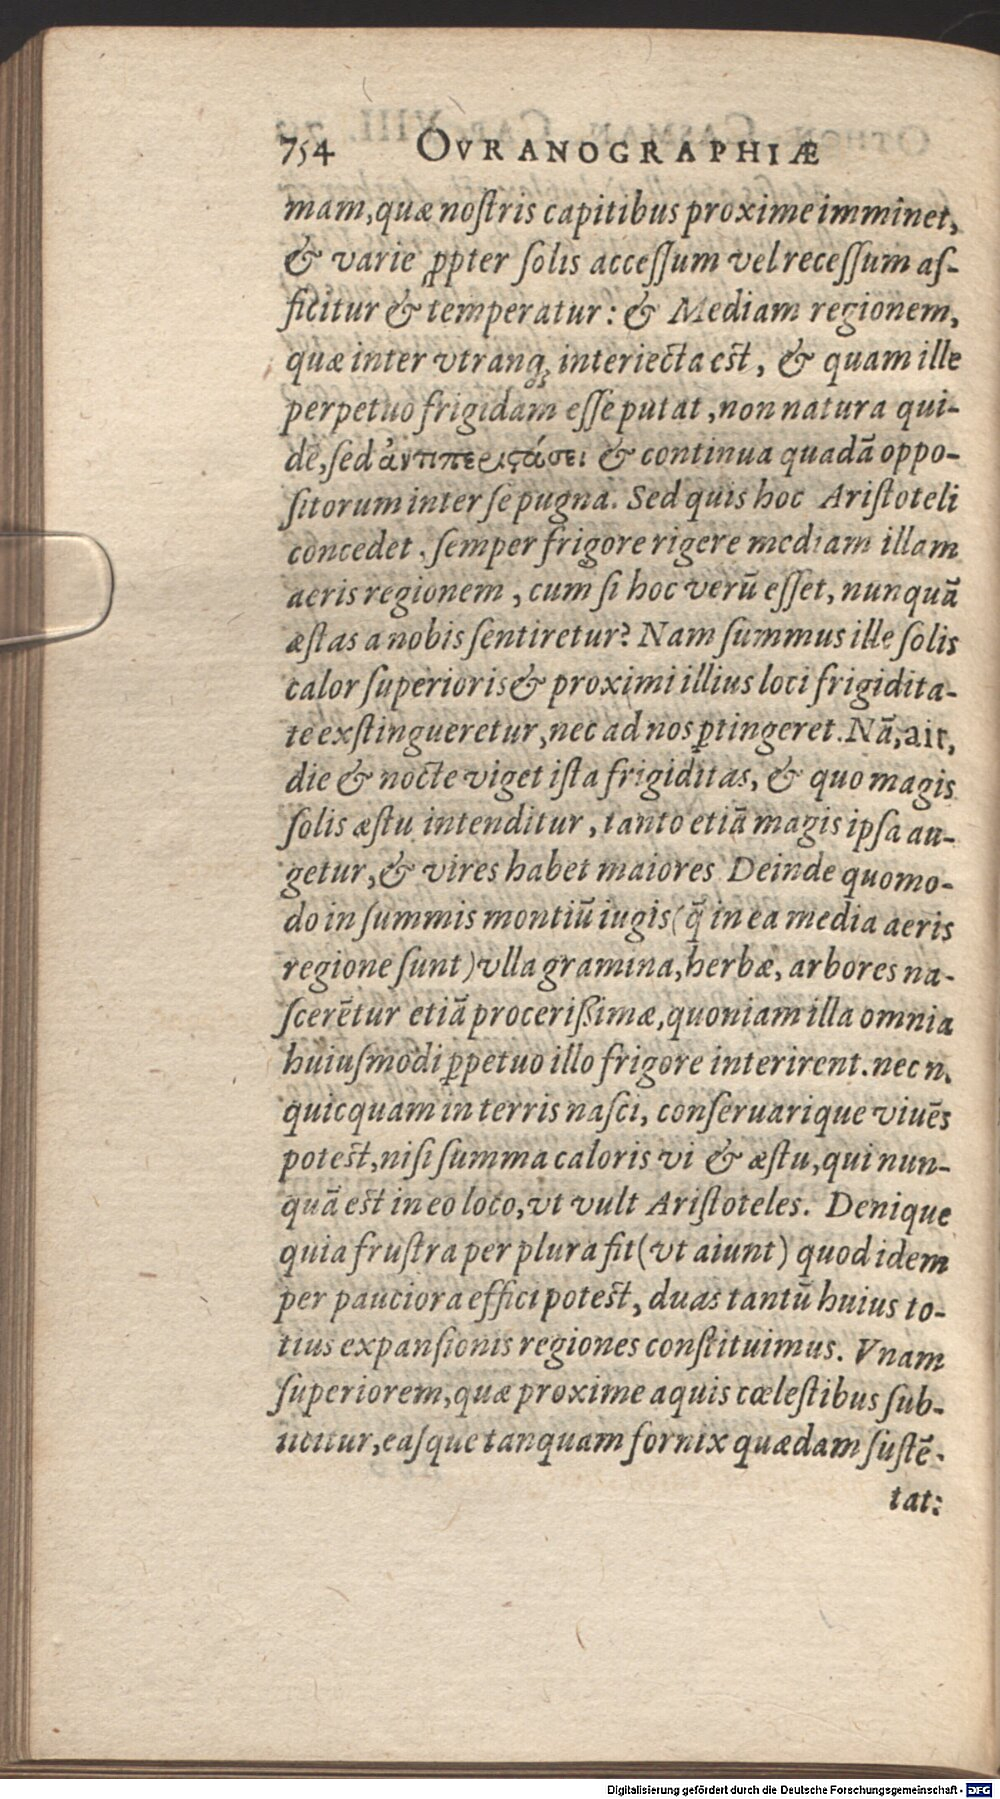 754 OVRANOGRAPHIÆ
mam, quæ noſtris capitibus proxime imminet,
& varie ꝓpter ſolis acceſſum vel receſſum af-
ficitur & temperatur: & Mediam regionem,
quæ inter vtranq; interiecta est, & quam ille
perpetuo frigidam eſſe putat, non natura qui-
dē, ſed ἀντιπεριστάσει & continua quadā oppo-
ſitorum inter ſe pugna. Sed quis hoc Ariſtoteli
concedet, ſemper frigore rigere mediam illam
aeris regionem, cum ſi hoc verū eſſet, nunquā
æſtas a nobis ſentiretur? Nam ſummus ille ſolis
calor ſuperioris & proximi illius loci frigidita-
te exſtingueretur, nec ad nos ꝑtingeret. Nā, ait,
die & nocte viget iſta frigiditas, & quo magis
ſolis æſtu intenditur, tanto etiā magis ipſa au-
getur, & vires habet maiores Deinde quomo-
do in ſummis montiū iugis (q̄ in ea media aeris
regione ſunt) vlla gramina, herbæ, arbores na-
ſcerētur etiā proceriſſimæ, quoniam illa omnia
huiuſmodi ꝑpetuo illo frigore interirent. nec n.
quicquam in terris naſci, conſeruarique viuēs
potest, niſi ſumma caloris vi & æſtu, qui nun-
quā est in eo loco, vt vult Ariſtoteles. Denique
quia fruſtra per plura fit (vt aiunt) quod idem
per pauciora effici potest, duas tantū huius to-
tius expanſionis regiones conſtituimus. Vnam
ſuperiorem, quæ proxime aquis cœleſtibus ſub-
iicitur, eaſque tanquam fornix quædam ſuſtē-
tat:
Digitalisierung gefördert durch die Deutsche Forschungsgemeinschaft - DFG